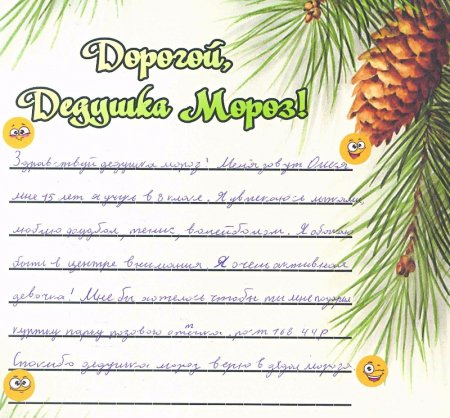 Дорогой,
Дедушка Мороз!
Здравствуй дедушка мороз! Меня зовут Олеся
мне 15 лет я учусь в 8 класе. Я увлекаюсь
люблю фудбол, тенис, волейболом. Я обожаю
быть в центре внимания Я очень активная
девочка! Мне бы хотелось чтобы ты мне подарил
куртку парку розовою оттенка, рост 168 44р
Спасибо дедушка мороз верю в деда мороза